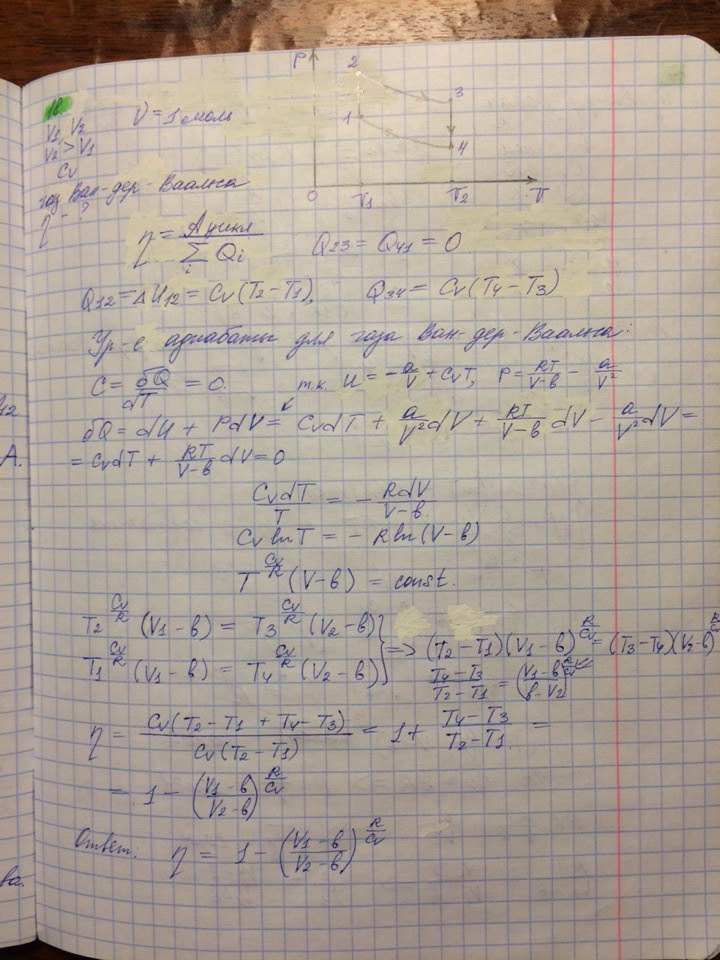 11
V₁, V₂
V₂ > V₁
Cv
газ Ван-дер-Ваальса
η - ?
ν = 1 моль
P
2
3
1
4
0
V₁
V₂
V
η = Aцикл / Σᵢ Qᵢ Q₂₃ = Q₄₁ = 0
Q₁₂ = ΔU₁₂ = Cv(T₂ - T₁), Q₃₄ = Cv(T₄ - T₃)
Ур-е адиабаты для газа Ван-дер-Ваальса:
C = δQ/dT = 0. т.к. U = -a/V + CvT, P = RT/(V-в) - a/V²
δQ = dU + PdV = CvdT + a/V² dV + RT/(V-в) dV - a/V² dV =
= CvdT + RT/(V-в) dV = 0
CvdT/T = - RdV/(V-в)
Cv ln T = - R ln(V-в)
T^(Cv/R) (V-в) = const.
T₂^(Cv/R) (V₁-в) = T₃^(Cv/R) (V₂-в)
T₁^(Cv/R) (V₁-в) = T₄^(Cv/R) (V₂-в) } => (T₂-T₁)(V₁-в)^(R/Cv) = (T₃-T₄)(V₂-в)^(R/Cv)
(T₄-T₃)/(T₂-T₁) = ((V₁-в)/(в-V₂))^(R/Cv)
η = Cv(T₂-T₁ + T₄-T₃) / Cv(T₂-T₁) = 1 + (T₄-T₃)/(T₂-T₁) =
= 1 - ((V₁-в)/(V₂-в))^(R/Cv)
Ответ: η = 1 - ((V₁-в)/(V₂-в))^(R/Cv)
12
А.
ва.